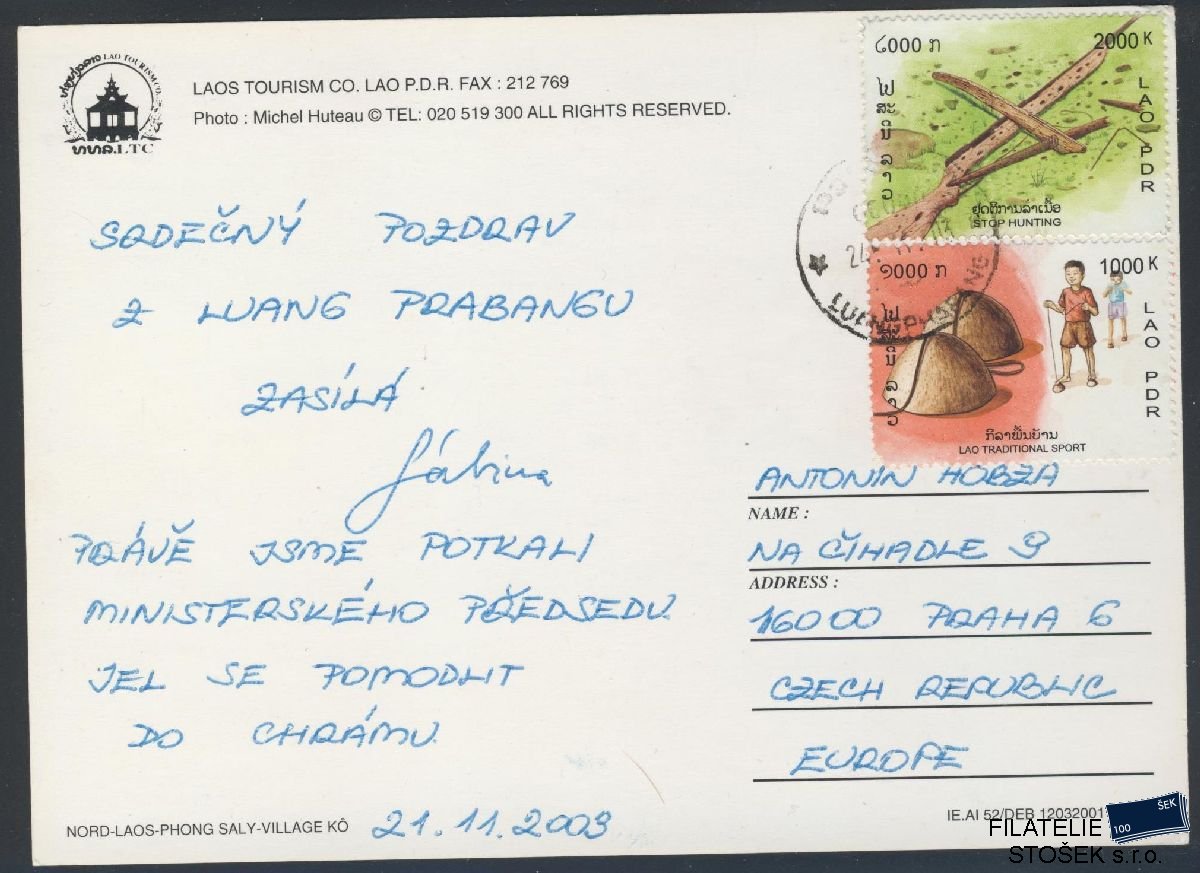 LAO TOURISM CO.
ททล.LTC
LAOS TOURISM CO. LAO P.D.R. FAX : 212 769
Photo : Michel Huteau © TEL: 020 519 300 ALL RIGHTS RESERVED.
SRDEČNÝ POZDRAV
Z LUANG PRABANGU
ZASÍLÁ
Sábina
PRÁVĚ JSME POTKALI
MINISTERSKÉHO PŘEDSEDU.
JEL SE POMODLIT
DO CHRÁMU.
21.11.2003
NORD-LAOS-PHONG SALY-VILLAGE KÔ
2000 K
LAO PDR
ຢຸດຕິການລ່າເນື້ອ
STOP HUNTING
໑000 ກ
1000 K
LAO PDR
ກິລາພື້ນບ້ານ
LAO TRADITIONAL SPORT
ANTONÍN HOBZA
NAME :
NA ČIHADLE 9
ADDRESS :
16000 PRAHA 6
CZECH REPUBLIC
EUROPE
IE.AI 52/DEB 1203200
FILATELIE
STOŠEK s.r.o.
100
ŠEK